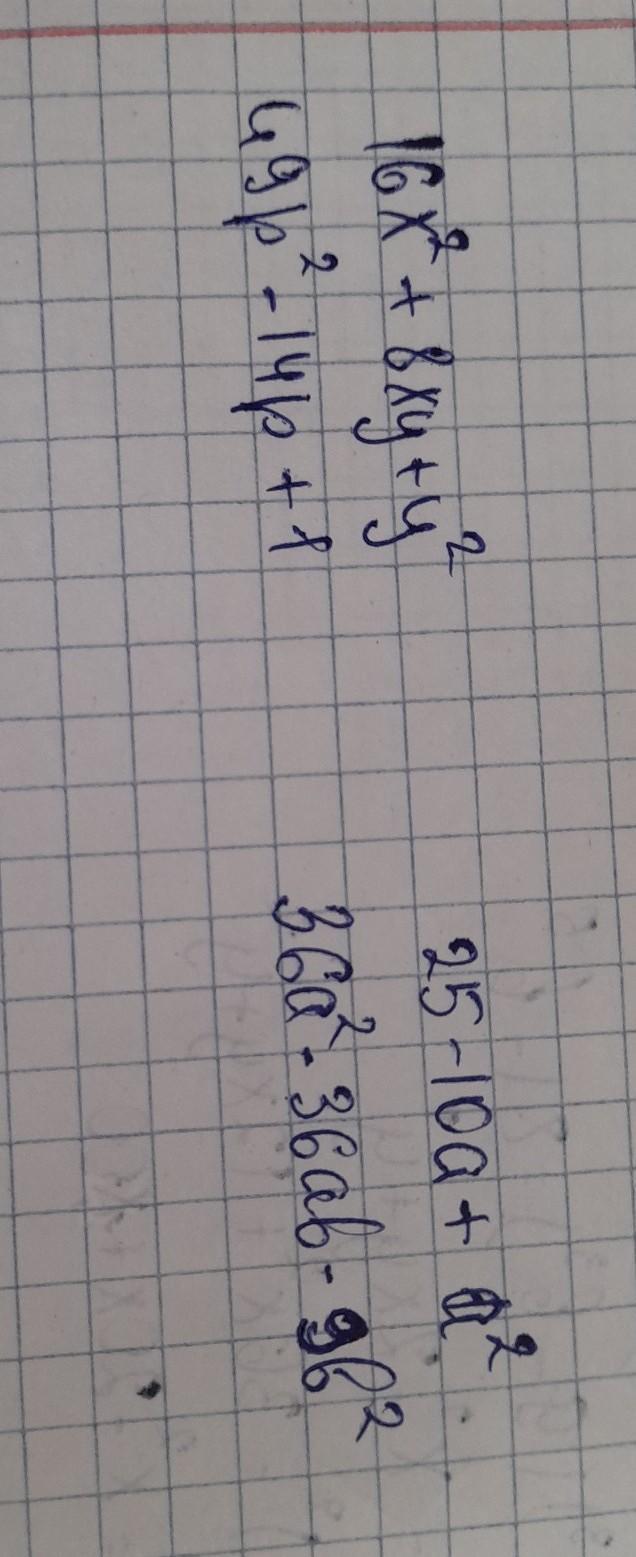 16x² + 8xy + y²
49p² - 14p + 1
25 - 10a + a²
36a² - 36ab - 9b²